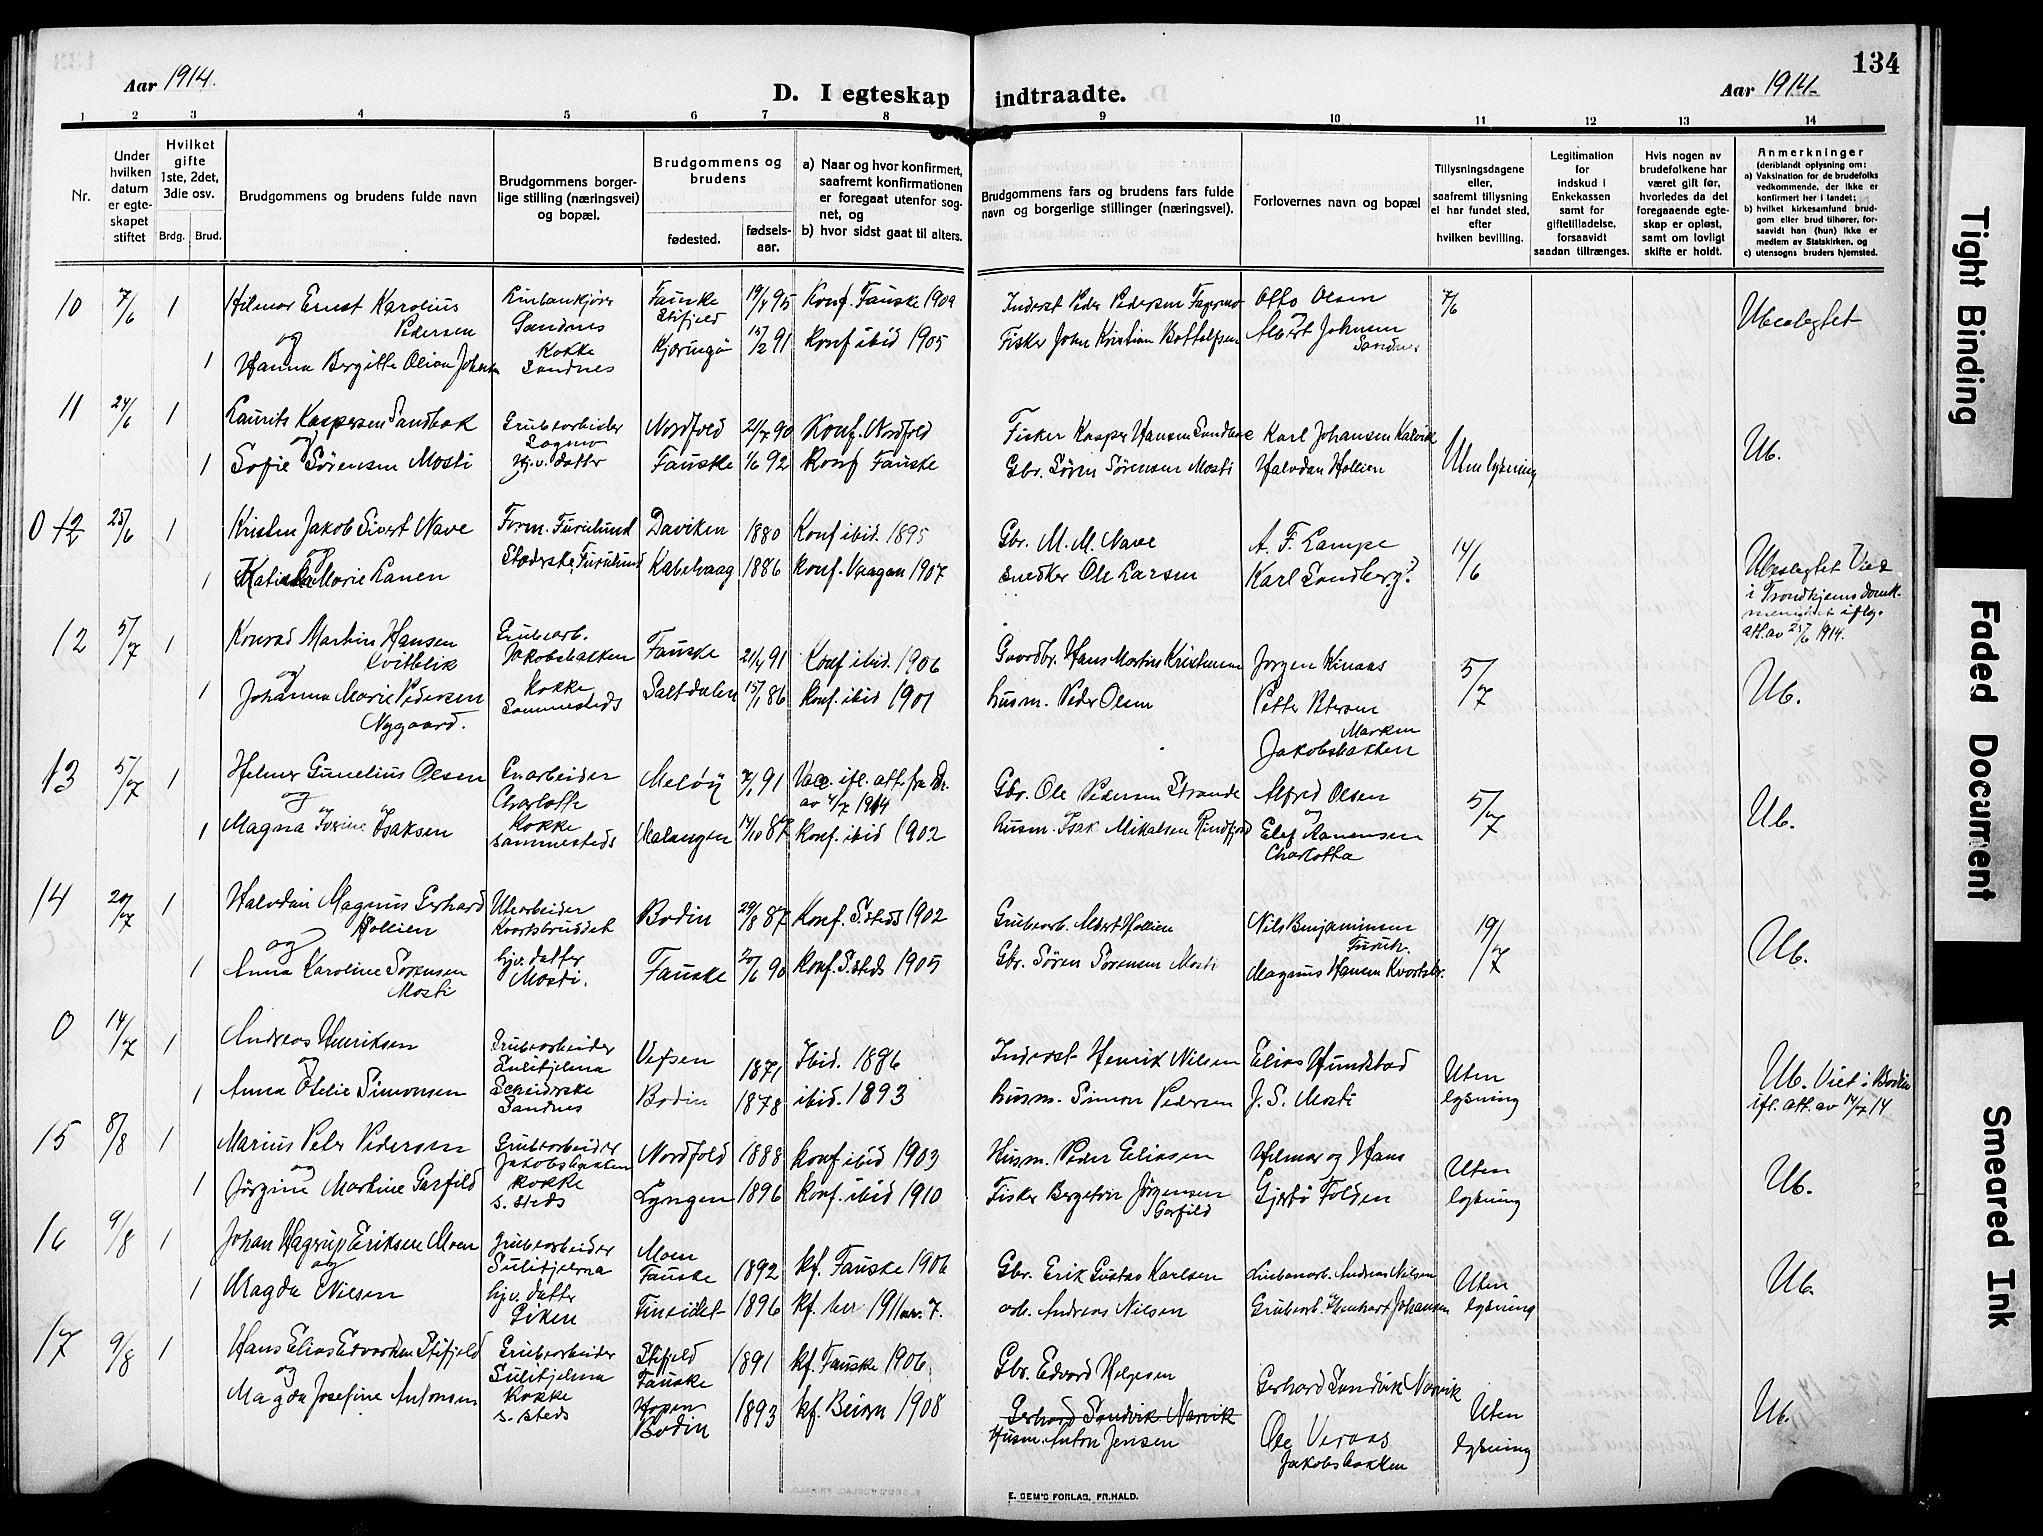 134
Aar 1914.
D. I egteskap indtraadte.
Aar 1914
1 2 3 4 5 6 7 8 9 10 11 12 13 14
Nr.
Under hvilken datum er egteskapet stiftet
Hvilket gifte 1ste, 2det, 3die osv.
Brdg. Brud.
Brudgommens og brudens fulde navn
Brudgommens borgerlige stilling (næringsvei) og bopæl.
Brudgommens og brudens
fødested.
fødselsaar.
a) Naar og hvor konfirmert, saafremt konfirmationen er foregaat utenfor sognet, og
b) hvor sidst gaat til alters.
Brudgommens fars og brudens fars fulde navn og borgerlige stillinger (næringsvei).
Forlovernes navn og bopæl
Tillysningsdagene eller, saafremt tillysning ei har fundet sted, efter hvilken bevilling.
Legitimation for indskud i Enkekassen samt for giftetilladelse, forsaavidt saadan tiltrænges.
Hvis nogen av brudefolkene har været gift før, hvorledes da det foregaaende egteskap er opløst, samt om lovligt skifte er holdt.
Anmerkninger
(deriblandt oplysning om:
a) Vaksination for de brudefolks vedkommende, der ikke er konfirmert her i landet;
b) hvilket kirkesamfund brudgom eller brud tilhører, forsaavidt han (hun) ikke er medlem av Statskirken, og
c) utensogns bruders hjemsted.
10 7/6 1 Hilmar Ernst Karolius Pedersen Sandnes Fauske Stifjeld 19/4 95 Konf. Fauske 1909 Inderst Peder Pedersen Otto Olsen 7/6 Ubeslegtet
og
1 Hanna Bergitte Oliva Johnsen Kokke Sandnes Kjeringö 15/2 91 Konf ibid 1905 Fisker John Kristian Bottolfsen Albert Johnsen Sandnes
11 24/6 1 Laurits Kaspersen Sandbak Grubearbeider Sagmo Nordfold 21/7 90 Konf. Nordfold Fisker Kasper Hansen Sandbak Karl Johansen Kalvik Uten lysning Ub.
og
1 Sofie Sørensen Mosti Hj.v. datter Fauske 1/6 92 Konf Fauske Gbr. Sören Sörensen Mosti Halvdan Hollien
0 12 25/6 1 Kristen Jakob Sivert Nave Form. Furulund Daviken 1880 Konf ibid. 1895 Gbr. M. M. Nave A. F. Lampe 14/6 Ubeslegtet Viet
1 Marie Lanen Furulund Kabelvaag 1886 konf. Vaagan 1907 snedker Ole Larsen Karl Sandberg? i Trondhjems domk.
att. av 25/6 1914.
12 5/7 1 Konrad Martin Hansen Kvitblik Grubearb. Jakobsbakken Fauske 21/4 91 Konf ibid. 1906 Gaardbr. Hans Martin Kristensen Jørgen Kinaas 5/7 Ub.
og
1 Johanna Marie Pedersen Nygaard. Kokke Sammesteds Saltdalen 15/1 86 konf. ibid 1901 husm. Peder Olsen Petter Petersen Marken Jakobsbakken
13 5/7 1 Helmer Cunelius Olsen Charlotta Melöy 7/1 91 Vacc. ifl. att. fra dr. av 4/7 1914 Gbr. Ole Pedersen Strande Alfred Olsen 5/7 Ub.
og og
1 Magna Isaksen Kokke sammesteds Malangen 14/10 87 Konf. ibid 1902 husm. Isak Mikalsen Elef Aanensen Charlotta
14 20/7 1 Halvdan Magnus Gerhard Hollien Utearbeider Kvartsbruddet Bodin 29/8 87 Konf. S.steds 1902 Grubearb. Albert Hollien Nils Benjaminsen Furuh. 19/7 Ub.
og
1 Anna Karoline Sørensen Mosti hjv. datter Mosti. Fauske 20/6 90 konf. S.steds 1905 Gbr. Sören Sörensen Mosti Magnus Hansen Kvartsbr.
0 14/7 1 Andreas Henriksen Grubearbeider Sulitjelma Vefsen 1871 Ibid. 1886 Inderst Henrik Nilsen Elias Hundstad Uten lysning Ub. Viet i Bodin
og
1 Anna Otelie Simonsen Scheiderske Sandnes Bodin 1878 ibid. 1893 husm. Simon Pedersen J. S. Mosti ifl. att. av 14/7 14
15 8/8 1 Marius Peter Pedersen Grubearbeider Jakobsbakken Nordfold 1888 konf ibid 1903 Husm. Peder Eliasen Hilmar og Hans Uten lysning Ub.
og
1 Jörgine Martine Garfild kokke s. steds Lyngen 1896 konf. ibid 1910 Fisker Bergeton Jørgensen Garfild Gjertö Folden
16 9/8 1 Johan Hagrup Eriksen Moen grubearbeider Sulitjelma Moen Fauske 1892 kf. Fauske 1906 Gbr. Erik Gustav Karlsen Linbanearb. Andreas Nilsen Uten lysning Ub.
og
1 Magda Nilsen hjv. datter Giken Finneidet 1896 kf. her 1911 nr. 7. arb. Andreas Nilsen Grubearb. Johansen
17 9/8 1 Hans Elias Edvardsen Stifjeld Grubearbeider Sulitjelma Stifjeld Fauske 1891 kf. Fauske 1906. Gbr. Edvard Helgesen Gerhard Sandvik Narvik Uten lysning Ub.
og
1 Magda Josefine Antonsen Kokke s. steds Hopen Bodin 1893 kf. Beiarn 1908 Gerhard Sandvik Narvik
Husm. Anton Jensen Ole Veraas Jakobsbakken
E. SEM'S FORLAG, FR.HALD.
Tight Binding
Faded Document
Smeared Ink